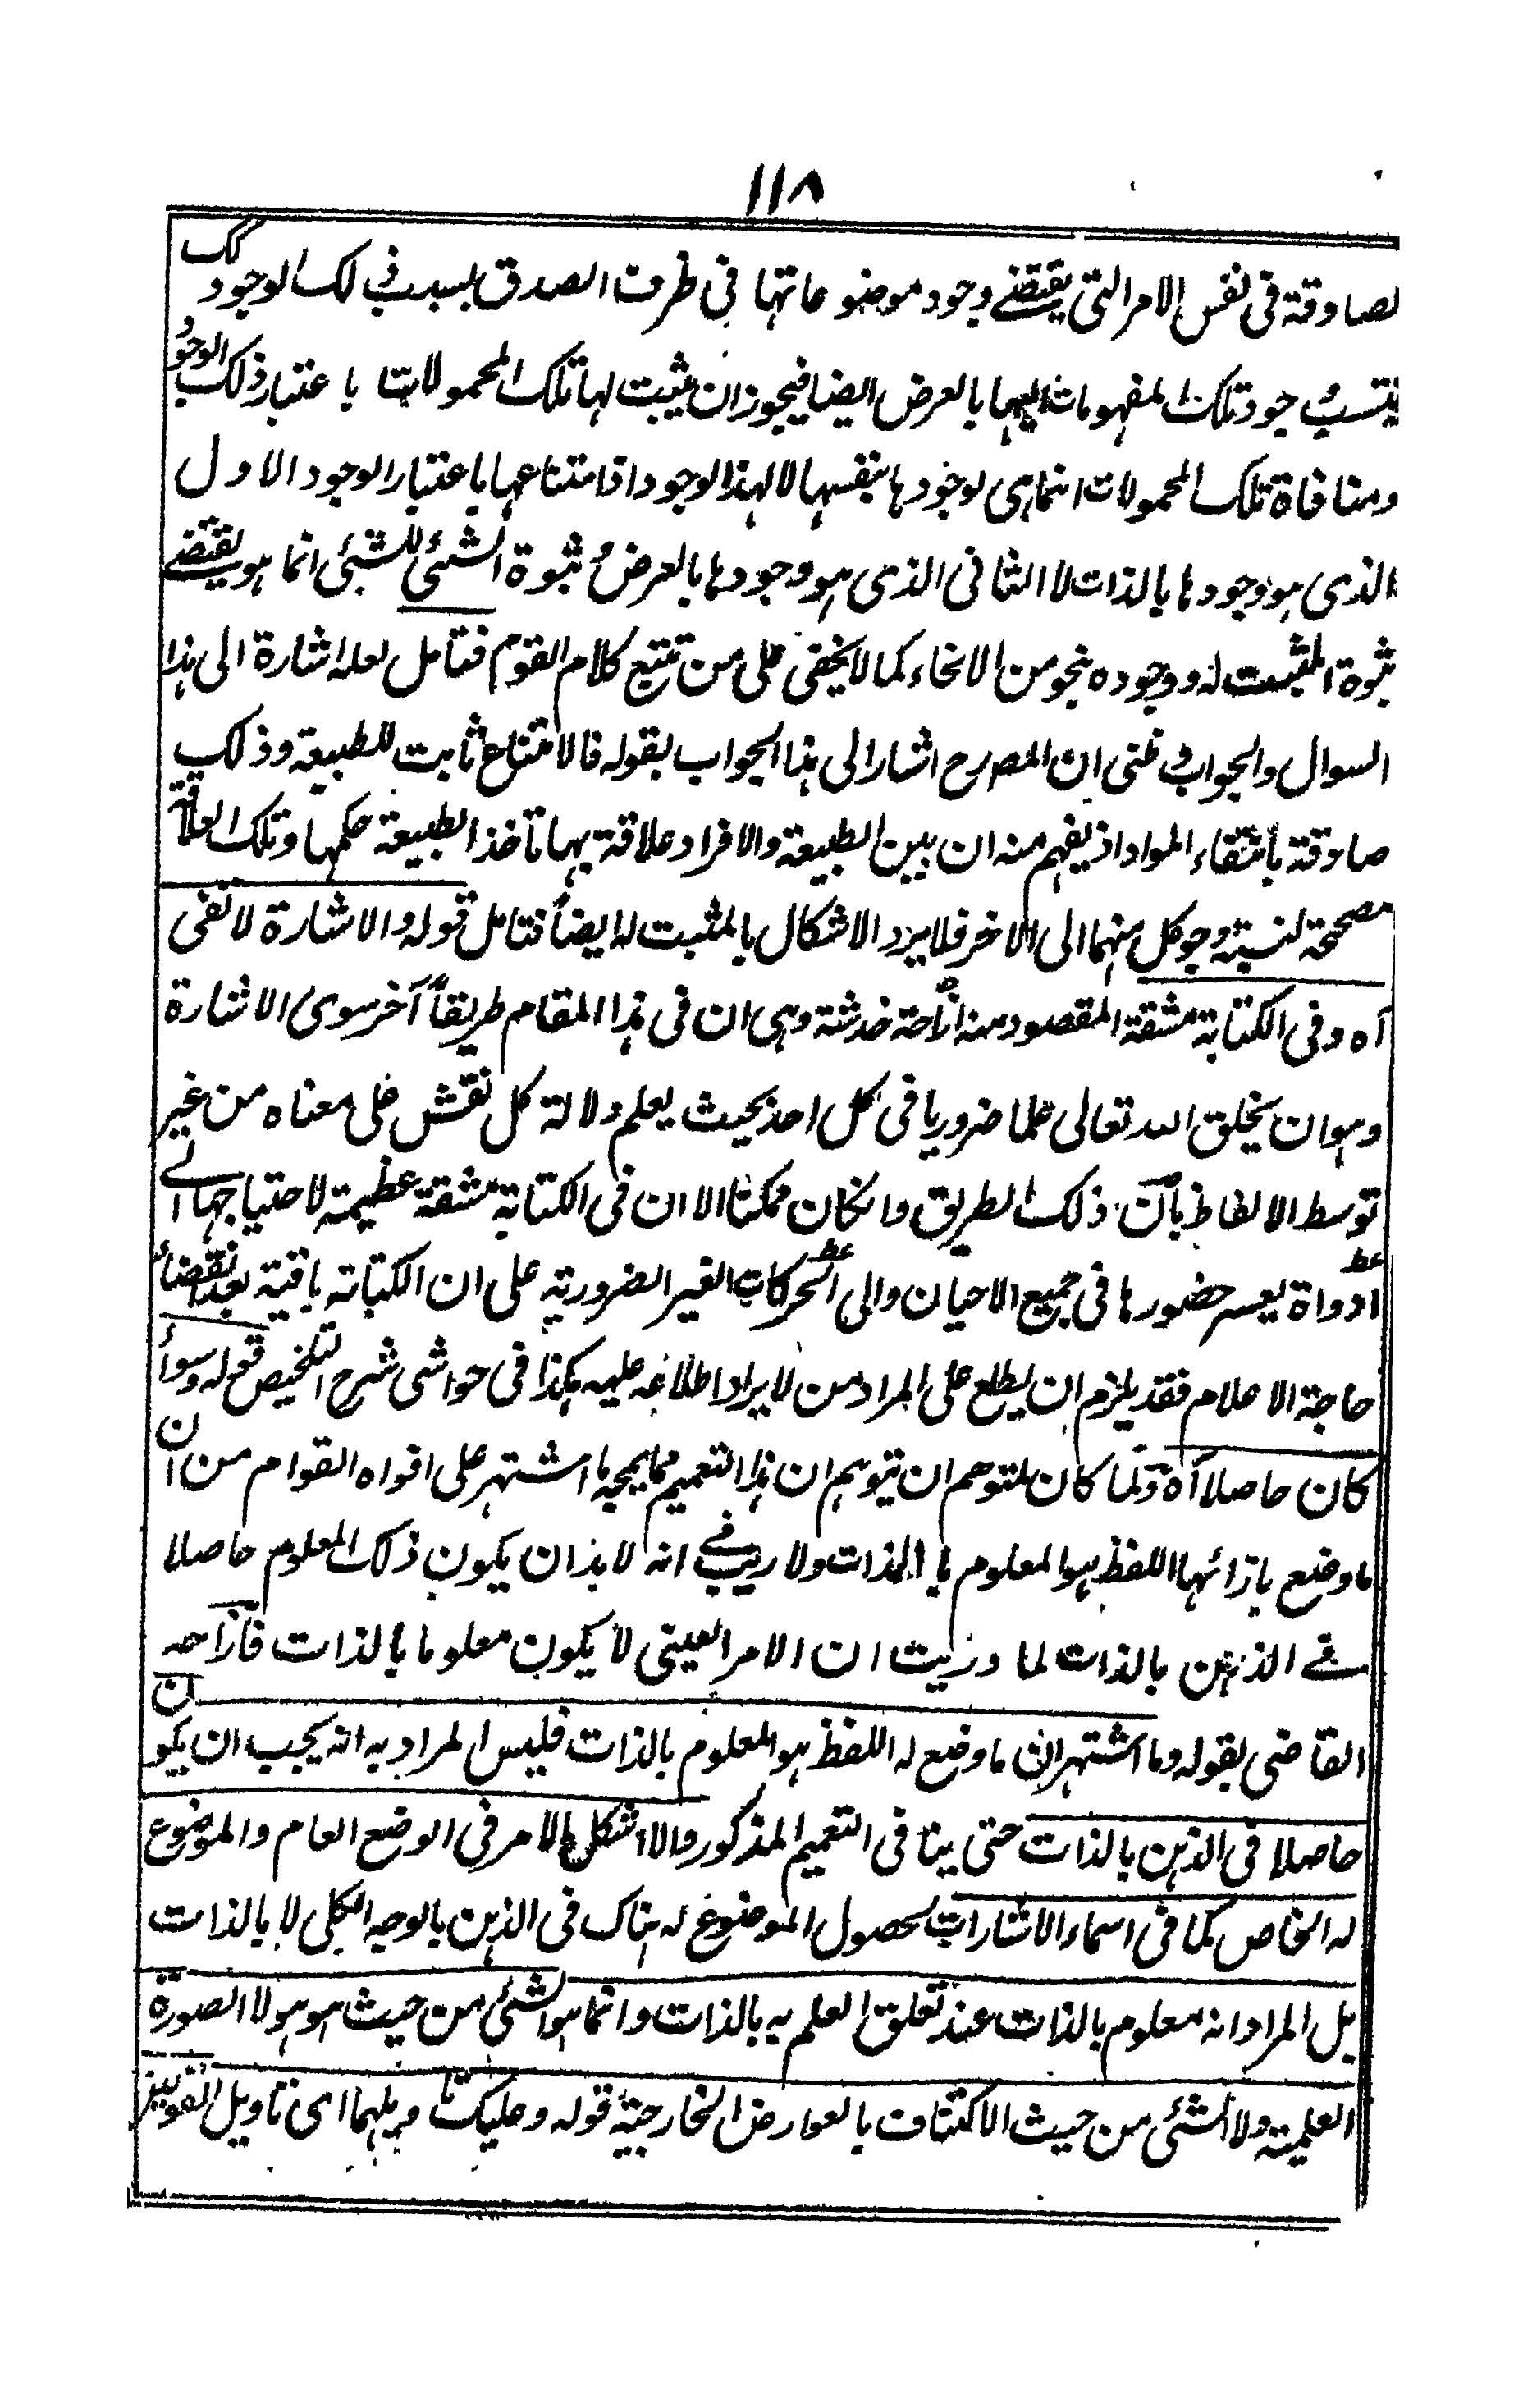 ١١٨
لصادقة فى نفس الامر التى يقتضے وجود موضوعاتها فى ظرف الصدق بسبب ذلك الوجود
ينتسب وجود تلك المفهومات اليها بالعرض ايضا فيجوز ان يثبت لها تلك المحمولات باعتبار ذلك الوجود
ومنافاة تلك المحمولات انما هى لوجودها بنفسها لا لهذا الوجود اذ امتناعها باعتبار الوجود الاول
الذى هو وجودها بالذات لا الثانى الذى هو وجودها بالعرض و ثبوة الشئى للشئى انما هو يقتضے
ثبوة المثبت له ووجوده بنحو من الانحاء كما لا يخفى على من تتبع كلام القوم فتأمل لعله اشارة الى هذا
السوال والجواب وظنى ان المصرح اشار الى هذا الجواب بقوله فالامتناع ثابت للطبيعة وذلك
صادقة بانتفاء المواد اذ يفهم منه ان بين الطبيعة والافراد علاقة بها تاخذ الطبيعة حكمها وتلك العلاقة
مصححة لنسبة وجو كل منهما الى الاخر فلا يرد الاشكال بالمثبت له ايضاً فتامل قوله والاشارة لا تفى
آه وفى الكتابة مشقة المقصود منه ازاحة خدشة وهى ان فى هذا المقام طريقاً آخر سوى الاشارة
وهو ان يخلق الله تعالى علما ضروريا فى كل احد بحيث يعلم دلالة كل نقش على معناه من غير
توسط الالفاظ بأن ذلك الطريق وان كان ممكنا الا ان فى الكتابة مشقة عظيمة لاحتياجها الے
ادواة يعسر حضورها فى جميع الاحيان والى الحركات الغير الضرورية على ان الكتابة باقية بعد انقضاء
حاجة الاعلام فقد يلزم ان يطلع على المراد من لا يراد اطلاعه عليه هكذا فى حواشى شرح التلخيص قوله وسواء
كان حاصلا آه ولما كان لمتوهم ان يتوهم ان هذا التعميم مما يمجه ما اشتهر على افواه القوام من ان
ما وضع بازائها اللفظ هو المعلوم بالذات ولا ريب فے انه لا بد ان يكون ذلك المعلوم حاصلا
فے الذهن بالذات لما دريت ان الامر العينى لا يكون معلوما بالذات فازاحه
القاضى بقوله وما اشتهر ان ما وضع له اللفظ هو المعلوم بالذات فليس المراد به انه يجب ان يكون
حاصلا فى الذهن بالذات حتى ينافى التعميم المذكور والا اشكل الامر فى الوضع العام والموضوع
له الخاص كما فى اسماء الاشارات لحصول الموضوع له هناك فى الذهن بالوجه الكلى لا بالذات
بل المراد انه معلوم بالذات عند تعلق العلم به بالذات وانما هو الشئى من حيث هو هو لا الصورة
العلمية ولا الشئى من حيث الاكتناف بالعوارض الخارجية قوله وعليك تاويلهما اى تاويل القولين